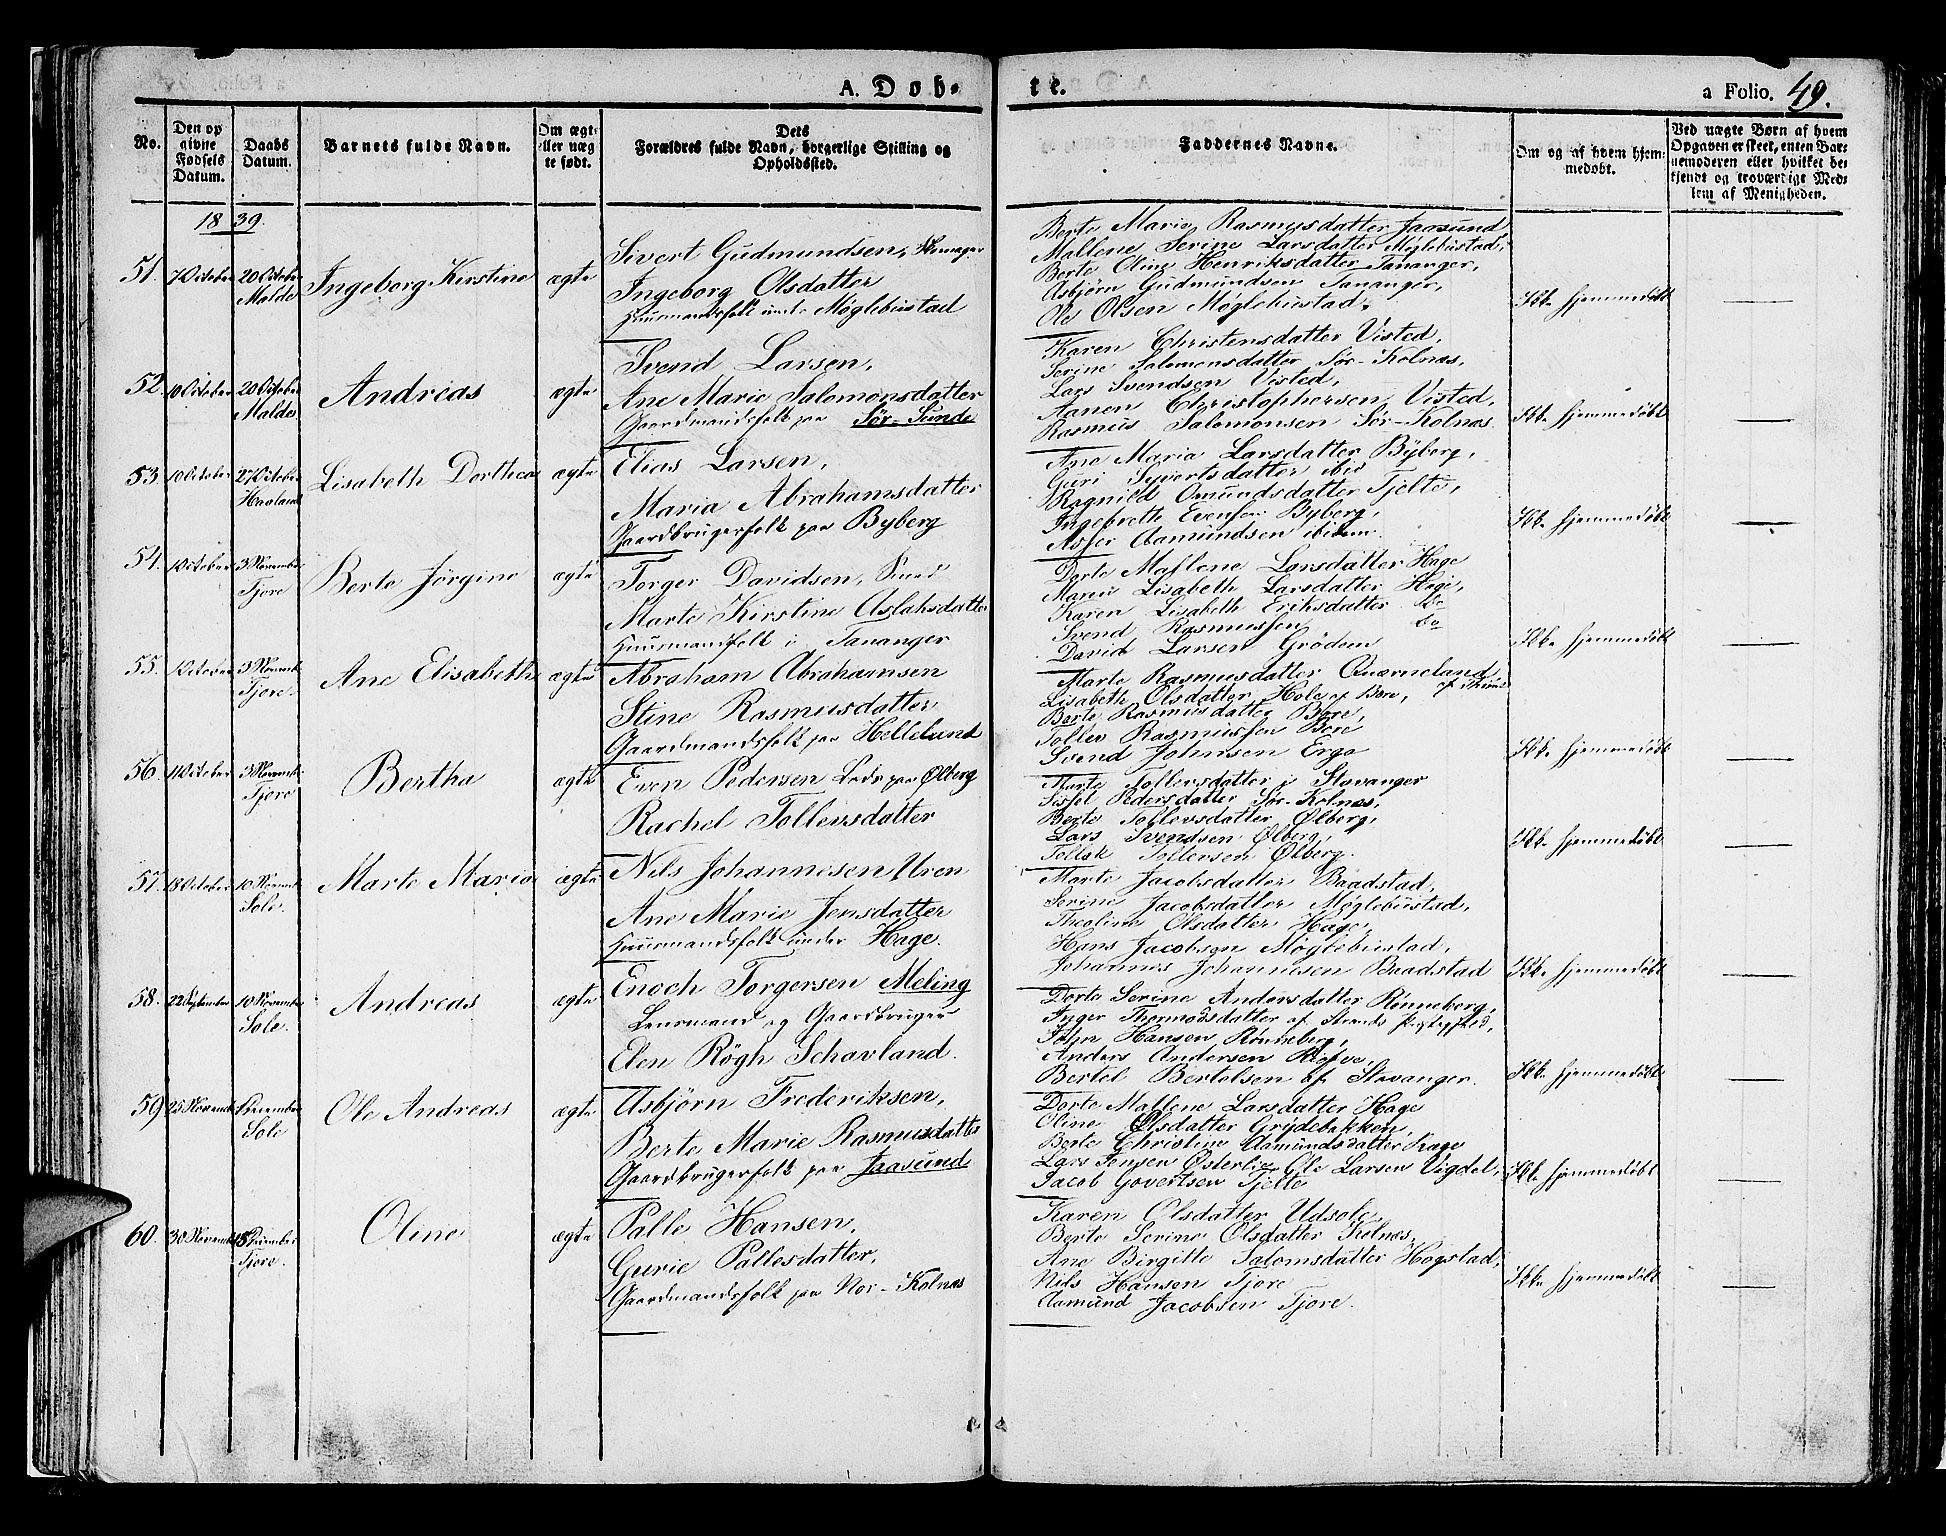 A. Døb-
te.
a Folio. 49.
No.
Den op
givne
Fødsels
Datum.
Daabs
Datum.
Barnets fulde Navn.
Om ægte
eller uæg
te født.
Dets
Forældres fulde Navn, borgerlige Stilling og
Opholdssted.
Faddernes Navne.
Om og af hvem hjem-
medøbt.
Ved uægte Børn af hvem
Opgaven er skeet, enten Bar-
nemoderen eller hvilket be-
kjendt og troværdigt Med-
lem af Menigheden.
1839.
51.
7 October
20 October
Malde
Ingeborg Kirstine
ægte
Sivert Gudmundsen,
Ingeborg Olsdatter
Huusmandsfolk under Møglebustad
Berte Marie Rasmusdatter Jaasund
Mallene Serine Larsdatter Møglebustad,
Berte Oline Henriksdatter Tananger,
Asbjörn Gudmundsen Tananger,
Ole Olsen Møglebustad.
Ikke hjemmedøbt
52
10 October
20 October
Malde.
Andreas
ægte
Svend Larsen,
Ane Marie Salomonsdatter
Gaardmandsfolk paa Sør-Sunde
Karen Christensdatter Visted,
Serine Salomonsdatter Sør-Kolnæs,
Lars Svendsen Visted,
Aanen Christophersen Visted,
Rasmus Salomonsen Sør-Kolnæs.
Ikke hjemmedøbt
53
10 October
27 October
Haaland
Lisabeth Dorthea
ægte
Elias Larsen,
Maria Abrahamsdatter
Gaardbrugerfolk paa Byberg
Ane Maria Larsdatter Byberg,
Guri Syvertsdatter ibid
Ragnild Omundsdatter Tjelte,
Ingebrette Evensen Byberg,
Asser Aamundsen ibidem.
Ikke hjemmedøbt
54.
October
3 Novemb.
Tjore
Berte Jørgine
ægte
Torger Davidsen, Smed
Marte Kirstine Aslahsdatter
Huusmandfolk i Tananger
Dorte Mallene Larsdatter Hage
Marie Lisabeth Larsdatter Hage,
Karen Lisabeth Eriksdatter do
Svend Rasmussen do
David Larsen Grödem
Ikke hjemmedøbt
55.
October
3 Novemb.
Tjore.
Ane Elisabeth
ægte
Abraham Abrahamsen
Stine Rasmusdatter
Gaardmandsfolk paa Hellelund
Marte Rasmusdatter Qværneland
Lisabeth Olsdatter Hole af Bore,
Berte Rasmusdatter Bore,
Tollev Rasmussen Bore
Svend Johnsen Erga
Ikke hjemmedøbt
56
11 October
3 Novemb.
Tjore
Bertha
ægte
Even Pedersen Lode paa Ølberg
Rachel Tollevsdatter
Marte Tollevsdatter i Stavanger
Sissel Pedersdatter Sør-Kolnæs,
Berte Tollevsdatter Ølberg,
Lars Svendsen Ølberg,
Tollak Tollevsen Ølberg.
Ikke hjemmedøbt
57.
18 October
10 Novemb.
Sole.
Marte Maria
ægte
Nils Johannesen Uren
Ane Marie Jensdatter
Huusmandsfolk under Hage.
Marte Jacobsdatter Baadstad,
Serine Jacobsdatter Møglebustad,
Thcoline Olsdatter Hage,
Hans Jacobsen Møglebustad,
Johannes Johannesen Baadstad
Ikke hjemmedøbt
58.
22 September
10 Novemb.
Sole.
Andreas
ægte
Enoch Torgersen Meling
Lensmand og Gaardbruger
Elen Rögh Schavland.
Dorte Serine Andersdatter Rønneberg,
Inger Thormodsdatter af Strands
John Hansen Rønneberg,
Anders Andersen
Bertel Bertelsen af Stavanger.
Ikke hjemmedøbt
59
25 Novemb.
December
Sole
Ole Andreas
ægte
Asbjörn Frederiksen,
Berte Marie Rasmusdatter
Gaardbrugerfolk paa Jaasund
Dorte Mallene Larsdatter Hage
Oline Olsdatter Grydebakken,
Berte Christine Aamundsdatter Hage
Lars Jensen Østerlie Ole Larsen Vigdel,
Jacob Govertsen Tjelte
Ikke hjemmedøbt
60.
30 Novemb.
December
Tjore.
Oline
ægte
Palle Hansen,
Gurie Pallesdatter,
Gaardmandsfolk paa Nor-Kolnæs
Karen Olsdatter Udsole,
Berte Serine Olsdatter Kolnæs,
Ane Birgitte Salomsdatter Hogstad,
Nils Hansen Tjore
Aamund Jacobsen Tjore.
Ikke hjemmedøbt